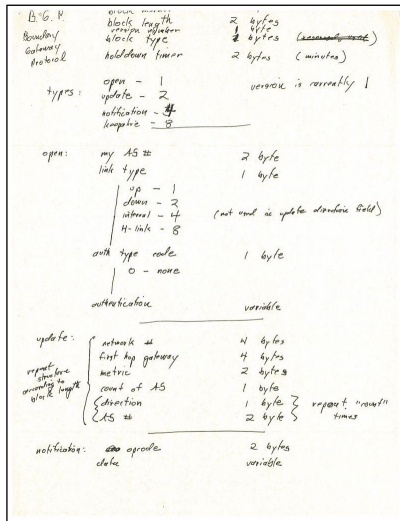 B.G.P.
Boundary
Gateway
Protocol
block length 2 bytes
version number 1 byte
block type bytes
holddown timer 2 bytes (minutes)
types: open - 1 version is currently 1
update - 2
notification - 4
keepalive - 8
open: my AS # 2 byte
link type 1 byte
up - 1
down - 2
internal - 4 (not used in update direction field)
H-link - 8
auth type code 1 byte
0 - none
authentication variable
update: network # 4 bytes
repeat structure according to block length
first hop gateway 4 bytes
metric 2 bytes
count of AS 1 byte
direction 1 byte repeat "count" times
AS # 2 byte
notification: opcode 2 bytes
data variable